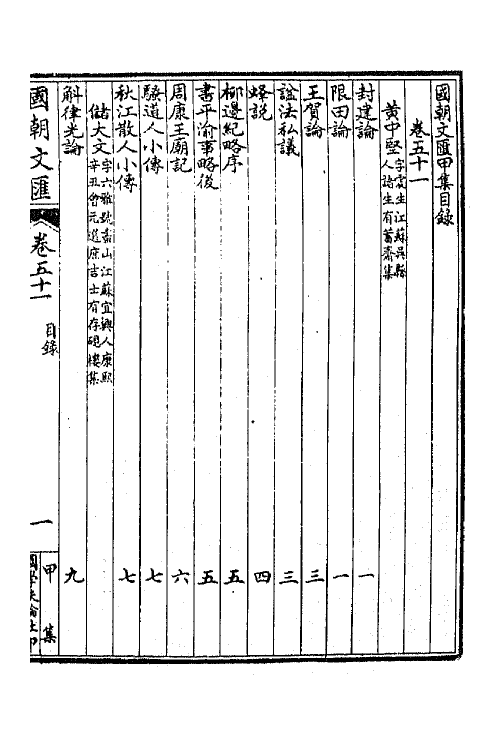 國朝文匯甲集目錄
卷五十一
黃中堅字震生江蘇吳縣人諸生有蓄齋集
封建論 一
限田論 一
王賀論 三
諡法私議 三
蟒說 四
柳邊紀略序 五
書平渝事略後 五
周康王廟記 六
騃道人小傳 七
秋江散人小傳 七
儲大文字六雅號畫山江蘇宜興人康熙辛丑會元選庶吉士有存硯樓集
斛律光論 九
國朝文匯 卷五十一 目錄 一 甲集
國學扶輪社印